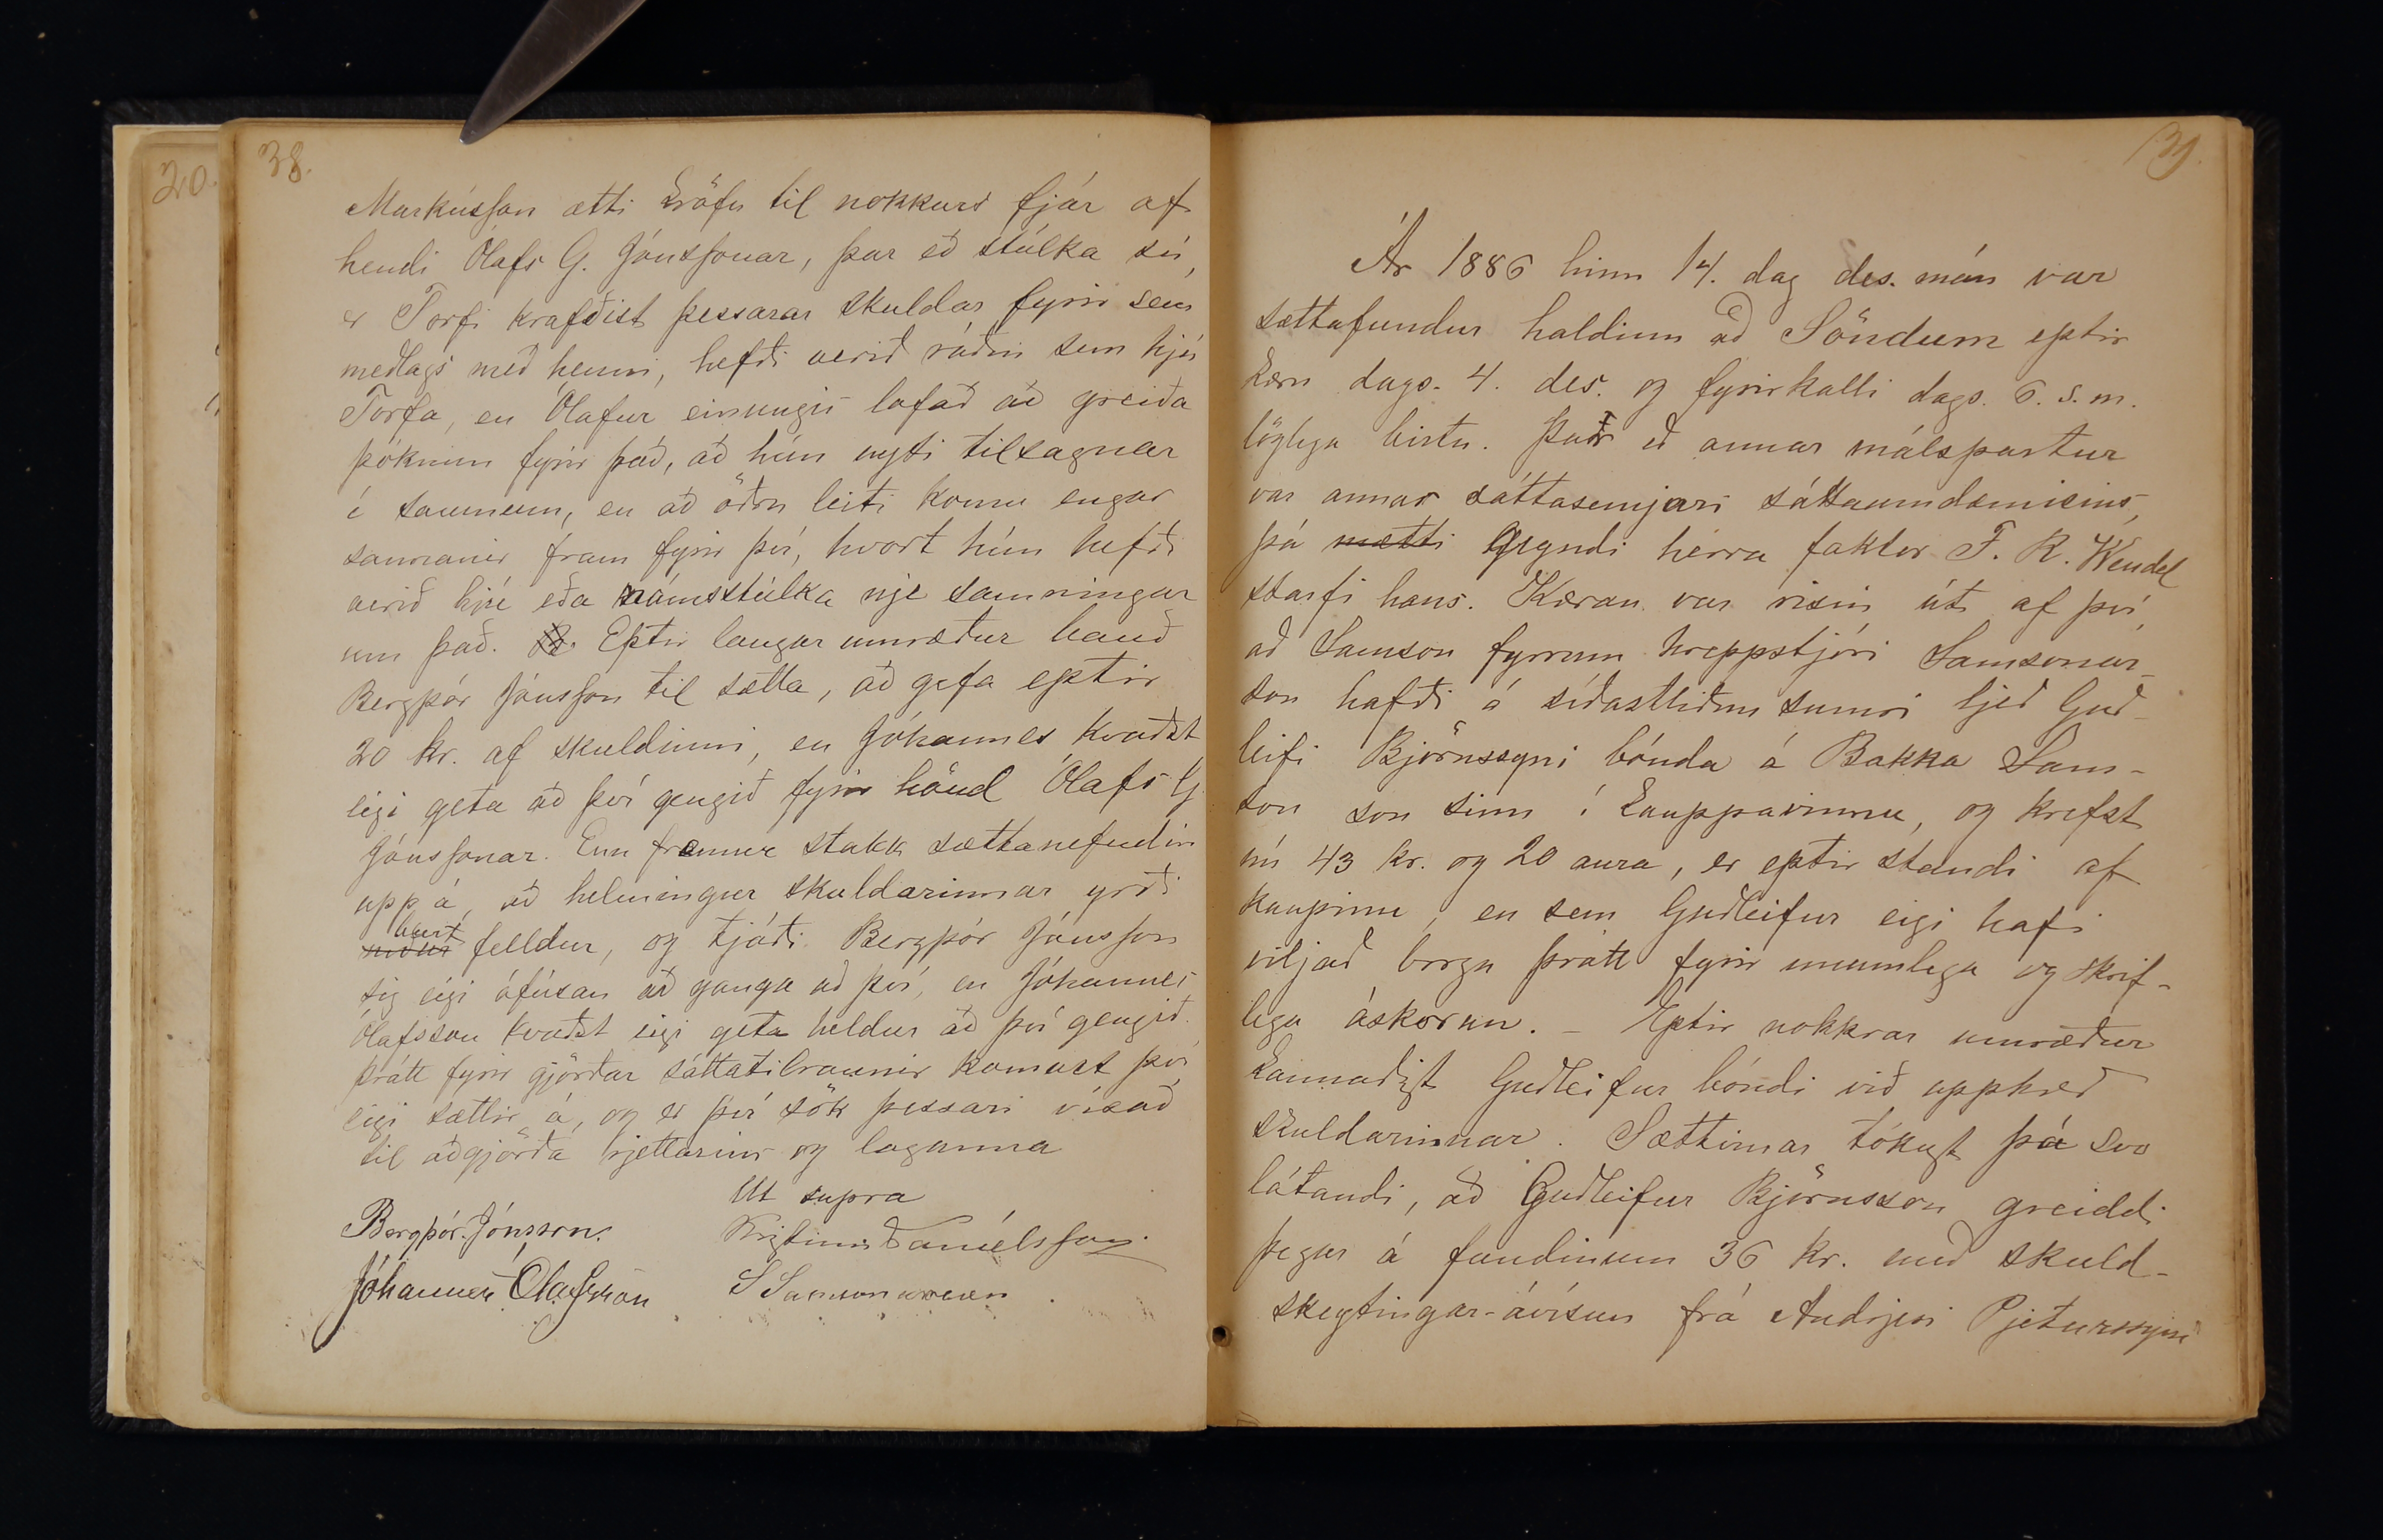 20.
38.
Markússon ætti kröfu til nokkurs fjár af
hendi Ólafs G. Jónssonar, þar eð stúlka sú,
er Torfi krafðist þessarar skuldar fyrir sem
meðlags með henni, hefði verið ráðin sem hjú
Torfa, en Ólafur einungis lofað að greiða
þóknun fyrir það, að hún nyti tilsagnar
í saumum, en að öðru leiti komu engar
sannanir fram fyrir því, hvort hún hefði
verið hjú eða námsstúlka nje samningar
um það. Eptir langar umræður bauð
Bergþór Jónsson til sætta, að gefa eptir
20 kr. af skuldinni, en Jóhannes kvaðst
eigi geta að því gengið fyrir hönd Ólafs G.
Jónssonar. Enn fremur stakk sættanefndin
upp á, að helmingur skuldarinnar yrði
burt
niður felldur, og tjáði Bergþór Jónsson
sig eigi ófúsan að ganga að því, en Jóhannes
Ólafsson kvaðst eigi geta heldur að því gengið.
Þrátt fyrir gjörðar sáttatilraunir komust því
eigi sættir á, og er því sök þessari vísað
til aðgjörða rjettarins og laganna
Ut supra
Bergþór Jónsson. Kristinn Daníelsson.
Jóhannes Ólafsson S Samsonarson
39.
Ár 1886 hinn 14. dag des. mán var
sættafundur haldinn að Söndum eptir
kæru dags. 4. des. og fyrirkalli dags. 6. s. m.
löglega birtu. Þar eð annar málspartur
var annar sáttasemjari sáttaumdæmisins,
þá mætti gegndi herra faktor F. R. Wendel
starfi hans. Kæran var risin út af því,
að Samson fyrrum hreppstjóri Samsonar-
son hafði á síðastliðnu sumri ljeð Guð-
leifi Björnssyni bónda á Bakka Sam-
son son sinn í kauppavinnu, og krefst
nú 43 kr. og 20 aura, er eptir standi af
kaupinu, en sem Guðleifur eigi hafi
viljað borga þrátt fyrir munnlega og skrif-
lega áskorun. – Eptir nokkrar umræður
kannaðist Guðleifur bóndi við upphæð
skuldarinnar. Sættirnar tókust þá svo
látandi, að Guðleifur Björnsson greiddi
þegar á fundinum 36 kr. með skuld-
skeytingar-ávísun frá Andrjesi Pjeturssyni